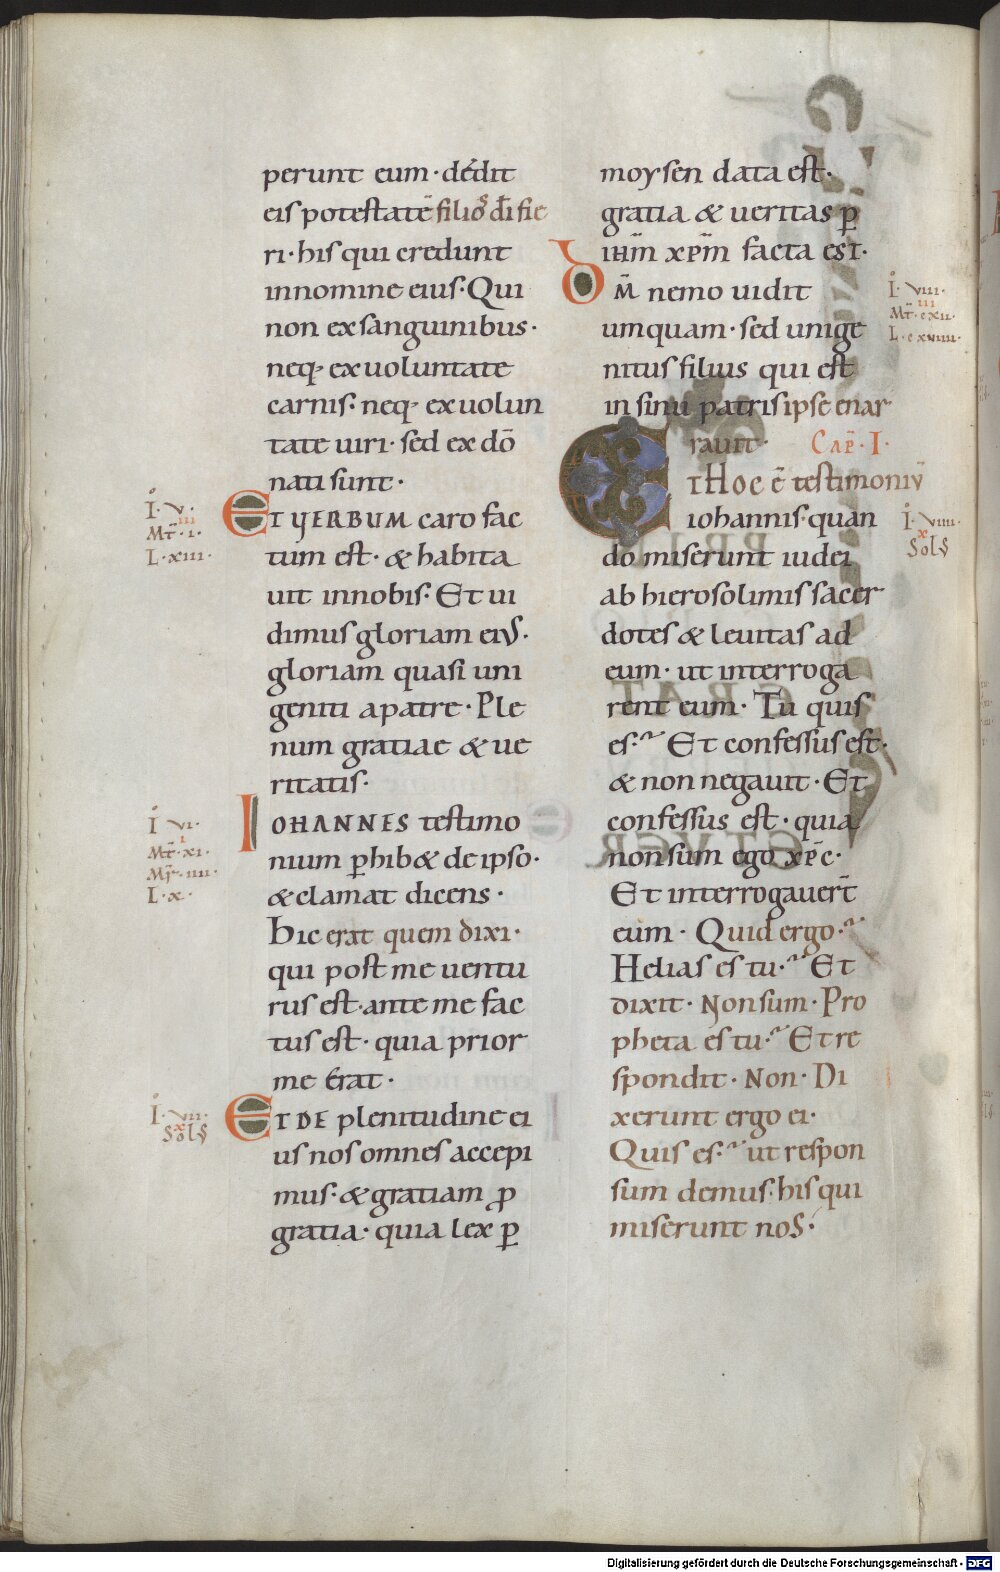 perunt eum · dedit
eis potestatē filioˢ dī fie
ri · his qui credunt
in nomine eius · Qui
non ex sanguinibus ·
neq; ex uoluntate
carnis · neq; ex uolun
tate uiri · sed ex dō
nati sunt ·
I · v ·
iii
Mt̄ · i ·
L · xiii ·
ET VERBUM caro fac
tum est · & habita
uit in nobis · Et ui
dimus gloriam eiuS ·
gloriam quasi uni
geniti a patre · Ple
num gratiae & ue
ritatis ·
I · vi ·
i
Mt̄ · xi ·
Mr̄ · iiii ·
L · x ·
IOHANNES testimo
nium p̄hib& de ipso ·
& clamat dicens ·
Hic erat quem dixi ·
qui post me ventu
rus est · ante me fac
tus est · quia prior
me erat ·
I · vii ·
x
SolS
ET DE plenitudine ei
us nos omnes accepi
mus · & gratiam ꝓ
gratia · quia lex ꝑ
moysen data est ·
gratia & ueritas ꝑ
ihm̄ xpm̄ facta esT ·
Dm̄ nemo uidit
umquam · sed unige
nitus filius qui est
in sinu patris ipse enar
rauit ·
I · viii ·
iii
Mt̄ · cxii ·
L · cxviiii ·
CAP̄ · I ·
ET Hoc ē testimoniū
iohannis · quan
do miserunt iudei
ab hierosolimis sacer
dotes & leuitas ad
eum · ut interroga
rent eum · Tu quis
es · Et confessus est ·
& non negauit · Et
confessus est · quia
non sum ego xp̄c ·
Et interrogauer̄t
eum · Quid ergo ·
Helias es tu · Et
dixit · Non sum · Pro
pheta es tu · Et re
spondit · Non · Di
xerunt ergo ei ·
Quis es · ut respon
sum demus · his qui
miserunt noS ·
I · viiii ·
x
SolS
Digitalisierung gefördert durch die Deutsche Forschungsgemeinschaft - DFG